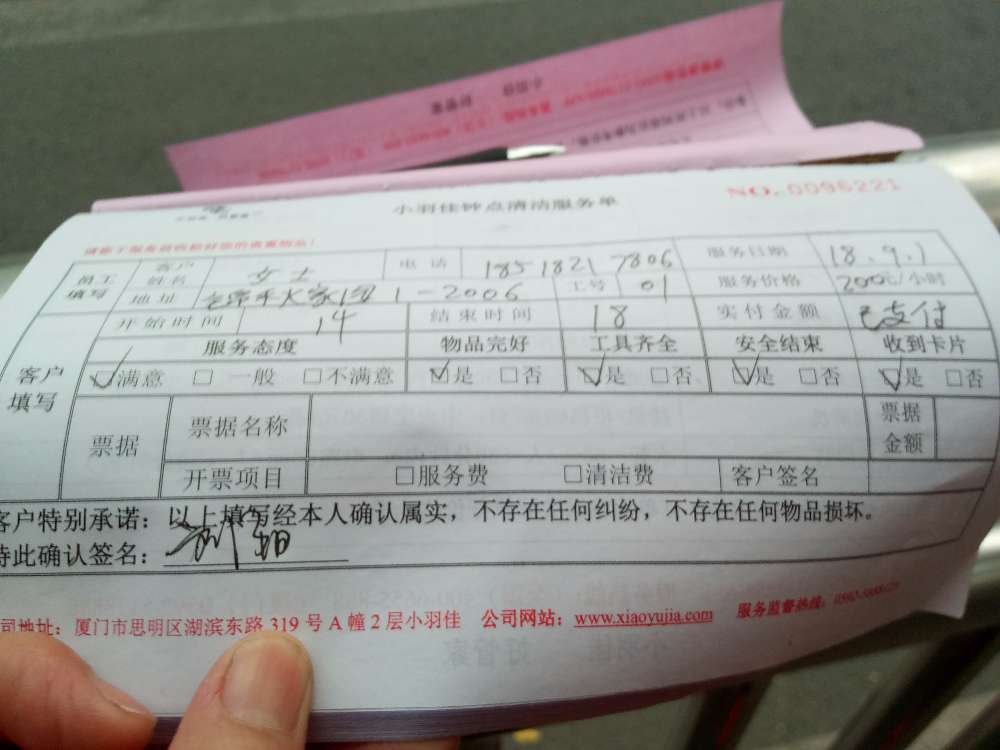 小羽佳钟点清洁服务单
NO. 0096221
员工填写 客户姓名 女士 电话 185 1821 7806 服务日期 18.9.1
地址 1-2006 工号 01 服务价格 200元/小时
客户填写 开始时间 14 结束时间 18 实付金额 已支付
服务态度 物品完好 工具齐全 安全结束 收到卡片
☑满意 □一般 □不满意 ☑是 □否 ☑是 □否 ☑是 □否 ☑是 □否
票据 票据名称 票据金额
开票项目 □服务费 □清洁费 客户签名
客户特别承诺：以上填写经本人确认属实，不存在任何纠纷，不存在任何物品损坏。
特此确认签名：
司地址：厦门市思明区湖滨东路319号A幢2层小羽佳 公司网站：www.xiaoyujia.com 服务监督热线：
小羽佳 好管家